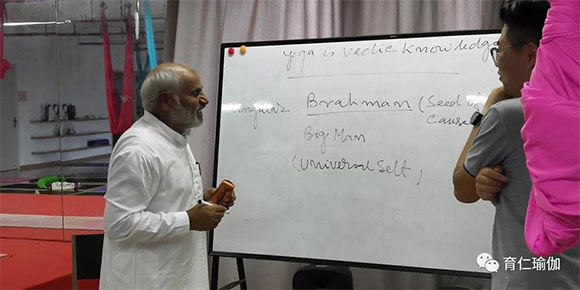 yoga is vedic knowledge
Brahman (Seed of
cause
Big Man
(Universal Self)
育仁瑜伽